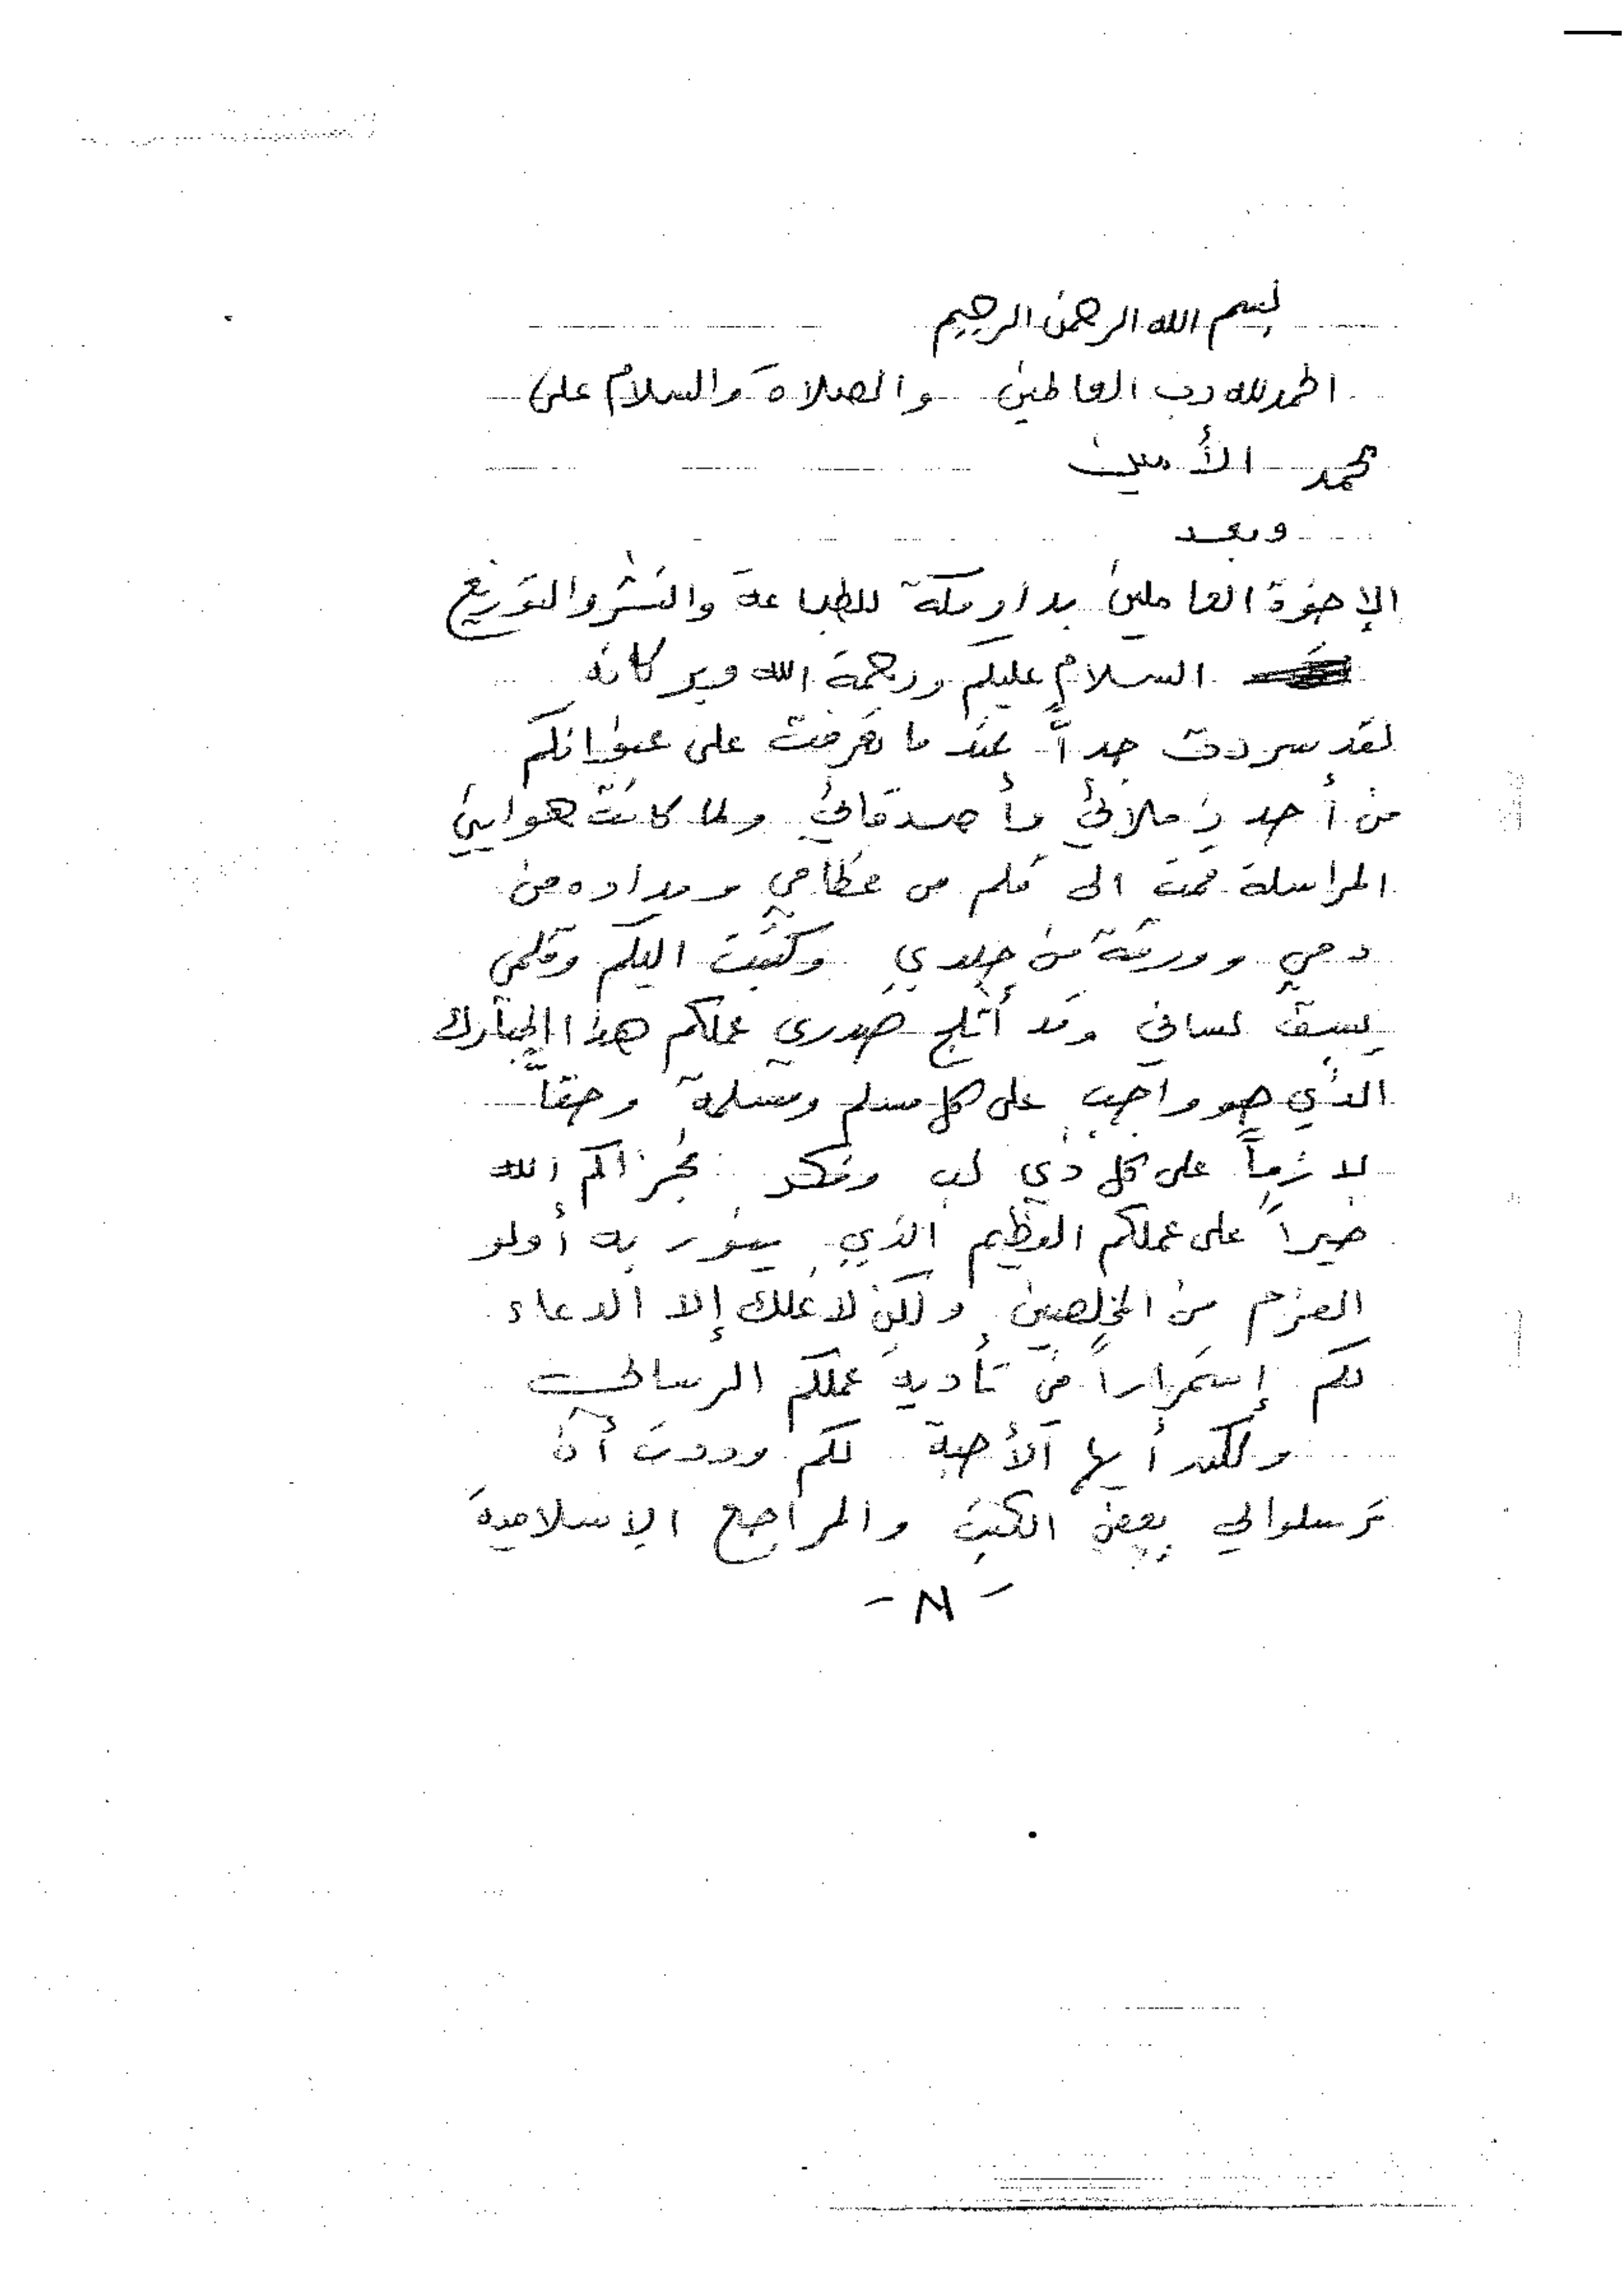 بسم الله الرحمن الرحيم
الحمد لله رب العالمين والصلاة والسلام على
محمد الأمين
وبعد
الإخوة العاملين بدار مكة للطباعة والنشر والتوزيع
السلام عليكم ورحمة الله وبركاته
لقد سررت جداً عند ما تعرفت على عنوانكم
من أحد زملائي وأصدقائي ولما كانت هوايتي
المراسلة قمت الى قلم من عظامي ومداده من
دمي وورقة من جلدي وكتبت اليكم وقلمي
يسبق لساني وقد أثلج صدري عملكم هذا المبارك
الذي هو واجب على كل مسلم ومسلمة وحقاً
لازماً على كل ذي لب وفكر فجزاكم الله
خيراً على عملكم العظيم الذي به أولو
العزم من المخلصين ولكن لا نملك إلا الدعاء
لكم إستمراراً في تأدية عملكم
أيها الأحبة لكم وددت أن
ترسلوا لي بعض الكتب والمراجع الإسلامية